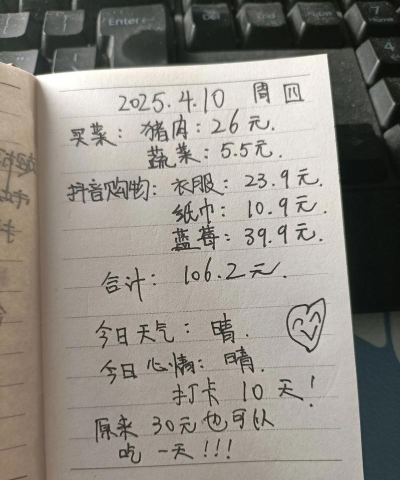 Enter
Del
End
PgDn
7
Home
4
2025.4.10 周四
买菜：猪肉：26元.
蔬菜：5.5元.
抖音购物：衣服：23.9元.
纸巾：10.9元.
蓝莓：39.9元.
合计：106.2元.
今日天气：晴.
今日心情：晴.
打卡 10 天！
原来 30元也可以
吃一天!!!